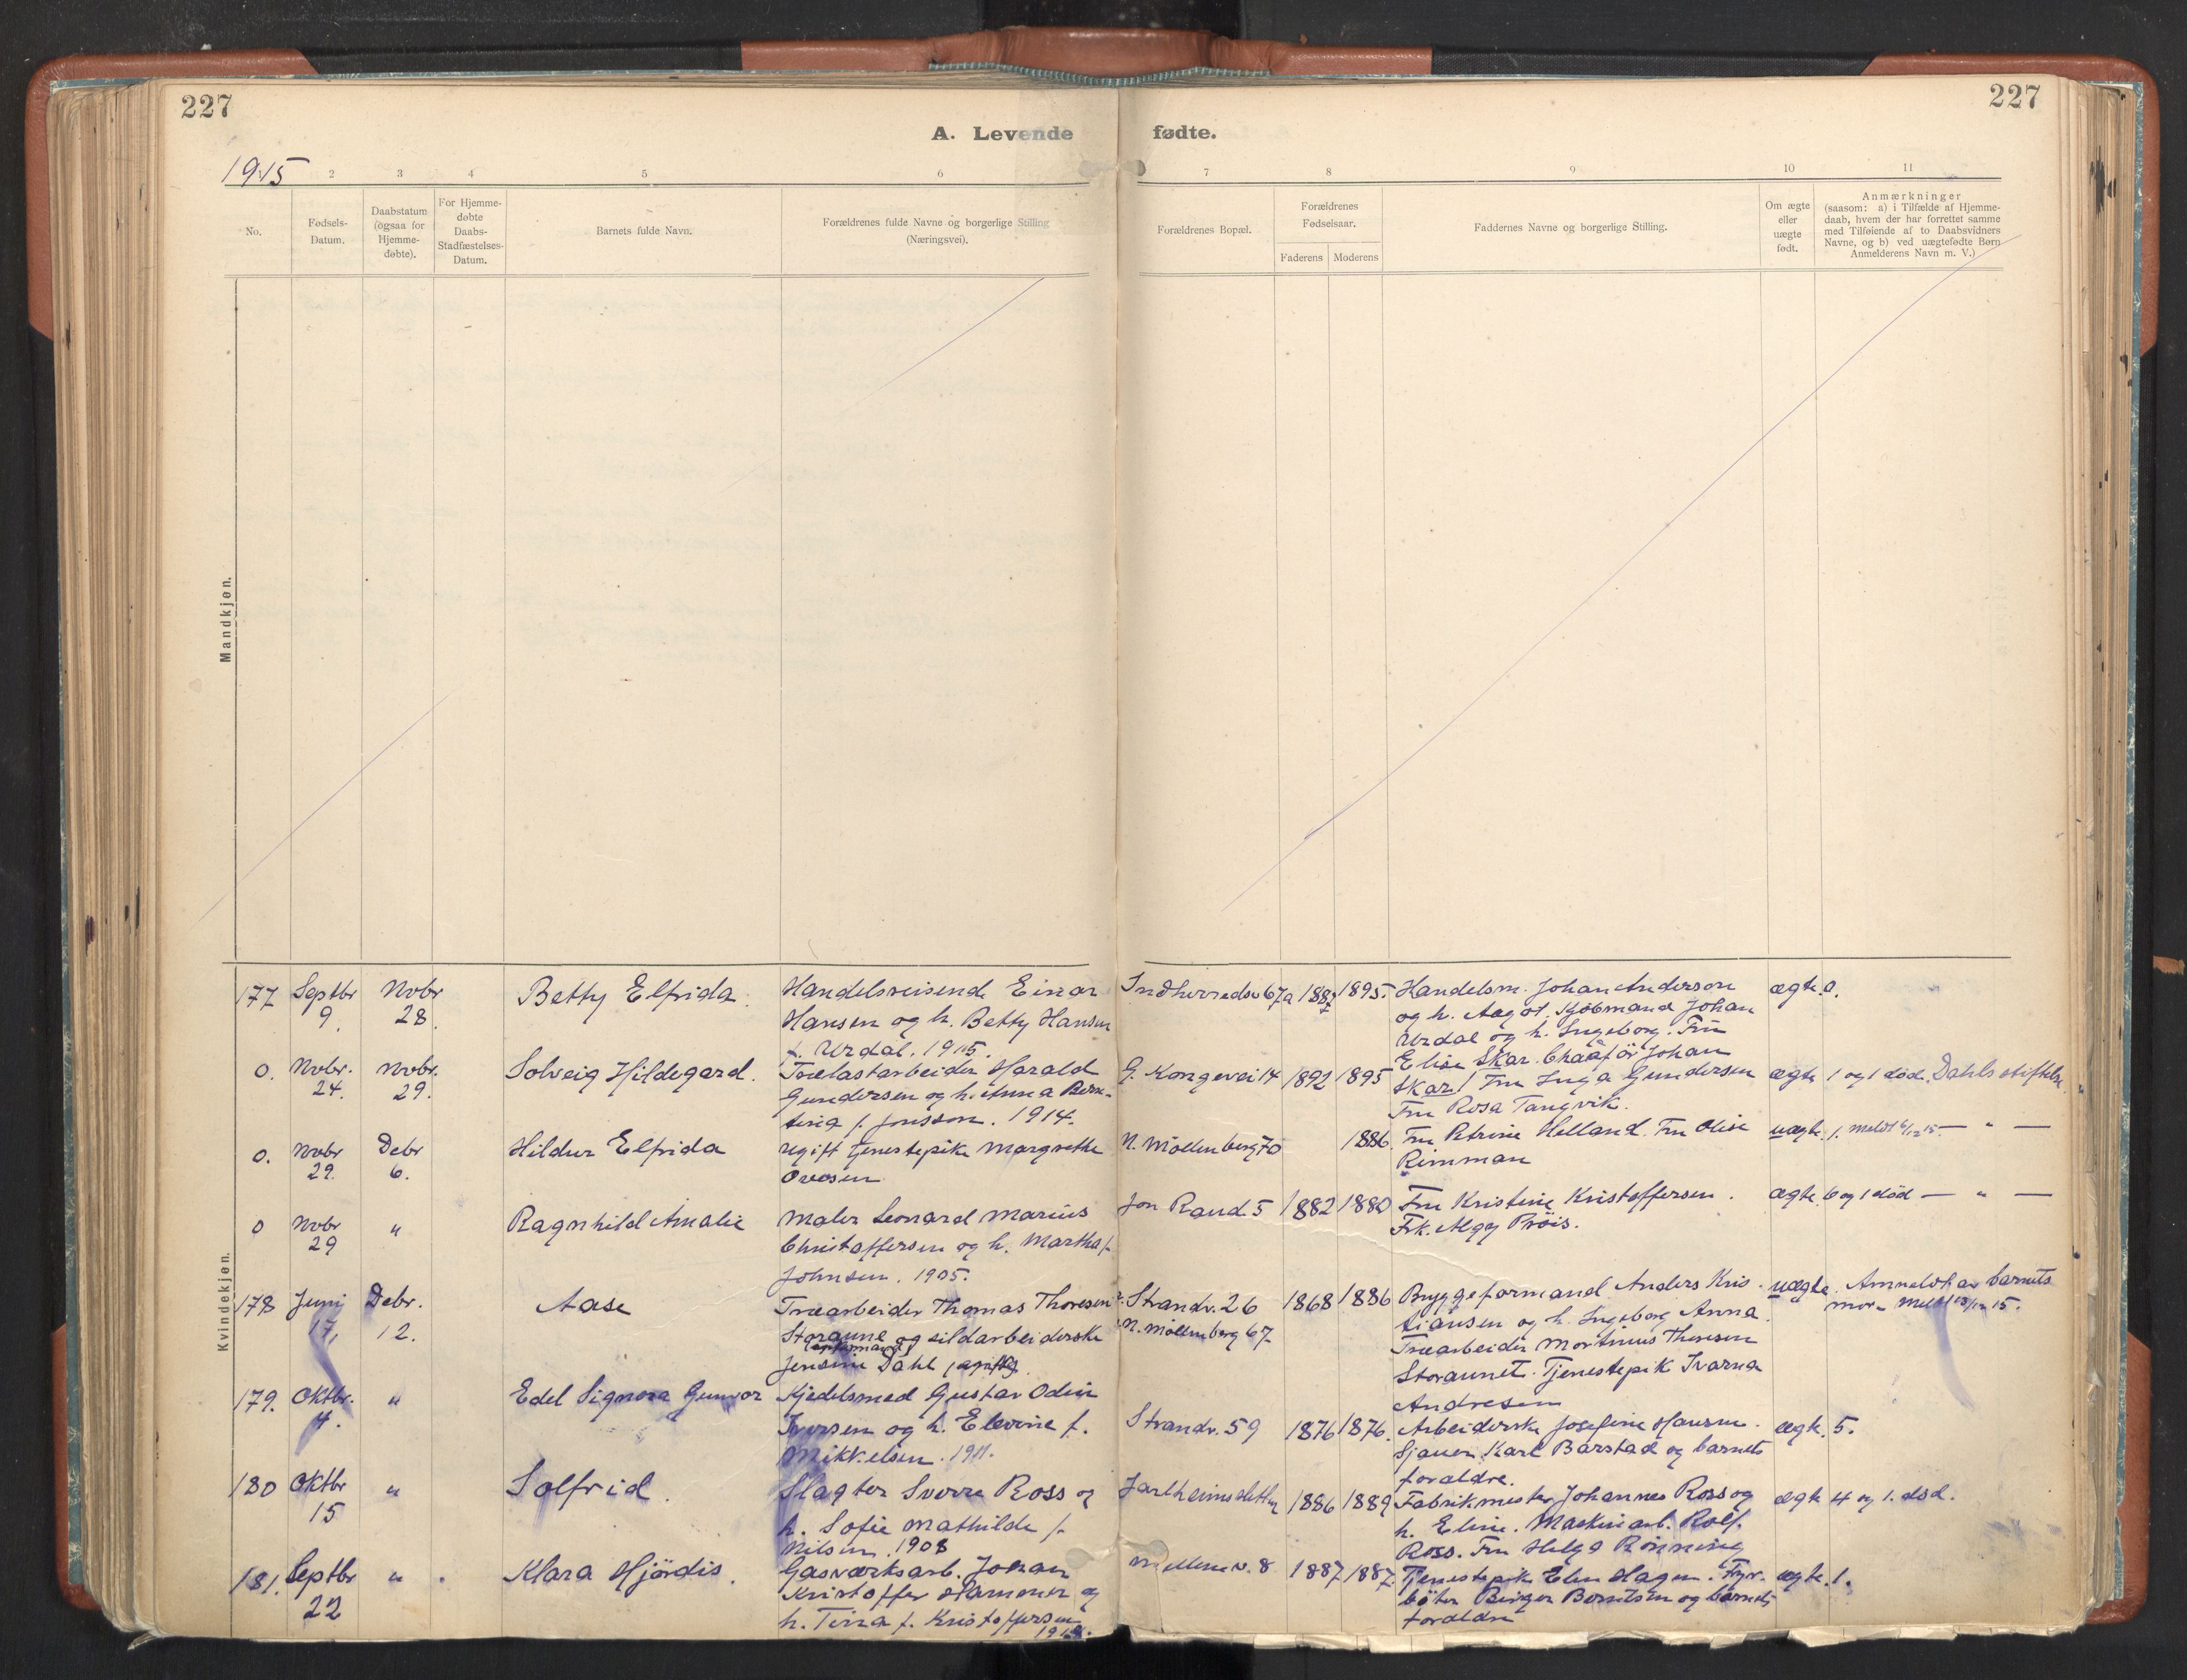 227
227
A. Levende fødte.
1915
2 3 4 5 6 7 8 9 10 11
No.
Fødsels-
Datum.
Daabstatum
(ogsaa for
Hjemme-
døbte).
For Hjemme-
døbte
Daabs-
Stadfæstelses-
Datum.
Barnets fulde Navn.
Forældrenes fulde Navne og borgerlige Stilling
(Næringsvei).
Forældrenes Bopæl.
Forældrenes
Fødselsaar.
Faderens Moderens
Faddernes Navne og borgerlige Stilling.
Om ægte
eller
uægte
født.
Anmærkninger
(saasom: a) i Tilfælde af Hjemme-
daab, hvem der har forrettet samme
med Tilføiende af to Daabsvidners
Navne, og b) ved uægtefødte Børn
Anmelderens Navn m. V.)
Mandkjøn.
Kvindekjøn.
177 Septbr 9. Nobr 28. Betty Elfrida.
Handelsreisende Einar
Hansen og h. Betty Hansen
f. Urdal. 1915.
Indherredsv 67a 1887 1895.
Handelsm. Johan Anderson
og h. Aagot. Kjöbmand Johan
Urdal og h. Ingeborg. Fru
Elise Skar. Chaafør Johan
Skar /
ægte. 0.
0. Nobr. 24. Nobr. 29. Solveig Hildegard.
Trælastarbeider Harald
Gundersen og h. Anna Bern-
tina f. Jonsson. 1914.
G. Kongevei 14 1892 1895
Fru Inga Gundersen
Fru Rosa Tangvik.
ægte 1 og 1 död. Dahls stiftelse
0. Nobr 29. Debr 6. Hildur Elfrida
Ugift tjenestepike Margrethe
Ovesen
N. Möllenberg 70 1886.
Fru Petrine Helland. Fru Olise
Rimman
uægte. 1. meldt 6/12 15. — " —
0 Nobr 29 " Ragnhild Amalie
Maler Leonard Marius
Christoffersen og h. Martha f.
Johnsen. 1905.
Jon Raud. 5 1882 1880
Fru Kristine Kristoffersen.
Frk. Aggy Pröis.
ægte. 6 og 1 död — " —
178 Juni 17, Debr. 12. Aase
Træarbeider Thomas Thoresen
Storaune og sildarbeiderske
Jensine Dahl
Strandv. 26
N. Möllenberg 67
1868 1886
Bryggeformand Anders Kris-
tiansen og h. Ingeborg Anna.
Træarbeider Mortinus Thoresen
Storaunet. Tjenestepik Ivarna
Andresen
uægte. Anmeldt av barnets
mor. Meldt 13/12 15.
179. Oktbr. 4. " Edel Signora Gunvor
Kjedelsmed Gustav Odin
Iversen og h. Elevine f.
Mikkelsen. 1911.
Strandv. 59 1876 1876.
Arbeiderske Josefine Hansen.
Sjauer Karl Barstad og barnets
forældre.
ægte. 5.
180 Oktbr 15 " Solfrid.
Slagter Sverre Ross og
h. Sofie Mathilde f.
Nilsen. 1908
Jarlheimsletten 1886 1889
Fabrikmester Johannes Ross og
h. Eline. Maskinarb. Rolf
Ross. Fru Helga Rönning
ægte 4 og 1. död.
181. Septbr 22 " Klara Hjördis.
Gasværksarb. Johan
Kristoffer Hammer og
h. Tina f. Kristoffersen
Mellemv. 8 1887 1887.
Tjenestepik Elen Hagen. Fyr-
böter Birger Berntsen og barnets
forældre
ægte. 1.